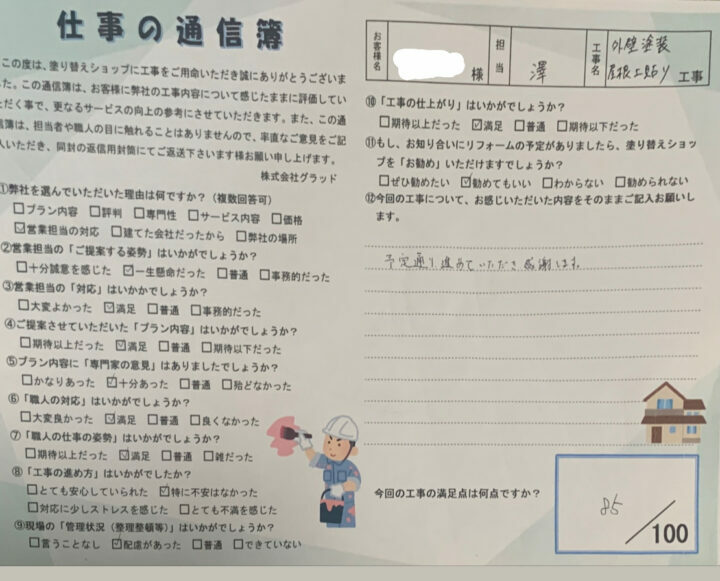 仕事の通信簿
この度は、塗り替えショップに工事をご用命いただき誠にありがとうございま
した。この通信簿は、お客様に弊社の工事内容について感じたままに評価してい
ただく事で、更なるサービスの向上の参考にさせていただきます。また、この通
信簿は、担当者や職人の目に触れることはありませんので、率直なご意見をご記
入いただき、同封の返信用封筒にてご返送下さいます様お願い申し上げます。
株式会社グラッド
①弊社を選んでいただいた理由は何ですか？（複数回答可）
□プラン内容 □評判 □専門性 □サービス内容 □価格
☑営業担当の対応 □建てた会社だったから □弊社の場所
②営業担当の「ご提案する姿勢」はいかがでしょうか？
□十分誠意を感じた ☑一生懸命だった □普通 □事務的だった
③営業担当の「対応」はいかかでしょうか？
□大変よかった ☑満足 □普通 □事務的だった
④ご提案させていただいた「プラン内容」はいかがでしょうか？
□期待以上だった ☑満足 □普通 □期待以下だった
⑤プラン内容に「専門家の意見」はありましたでしょうか？
□かなりあった ☑十分あった □普通 □殆どなかった
⑥「職人の対応」はいかがでしょうか？
□大変良かった ☑満足 □普通 □良くなかった
⑦「職人の仕事の姿勢」はいかがでしょうか？
□期待以上だった ☑満足 □普通 □雑だった
⑧「工事の進め方」はいかがでしたか？
□とても安心していられた ☑特に不安はなかった
□対応に少しストレスを感じた □とても不満を感じた
⑨現場の「管理状況（整理整頓等）」はいかがでしょうか？
□言うことなし ☑配慮があった □普通 □できていない
お客様名 様 担当 澤 工事名 外壁塗装
屋根工事 工事
⑩「工事の仕上がり」はいかがでしょうか？
□期待以上だった ☑満足 □普通 □期待以下だった
⑪もし、お知り合いにリフォームの予定がありましたら、塗り替えショッ
プを「お勧め」いただけますでしょうか？
□ぜひ勧めたい ☑勧めてもいい □わからない □勧められない
⑫今回の工事について、お感じいただいた内容をそのままご記入お願いし
ます。
予定通り進めていただき感謝します。
今回の工事の満足点は何点ですか？
85/100